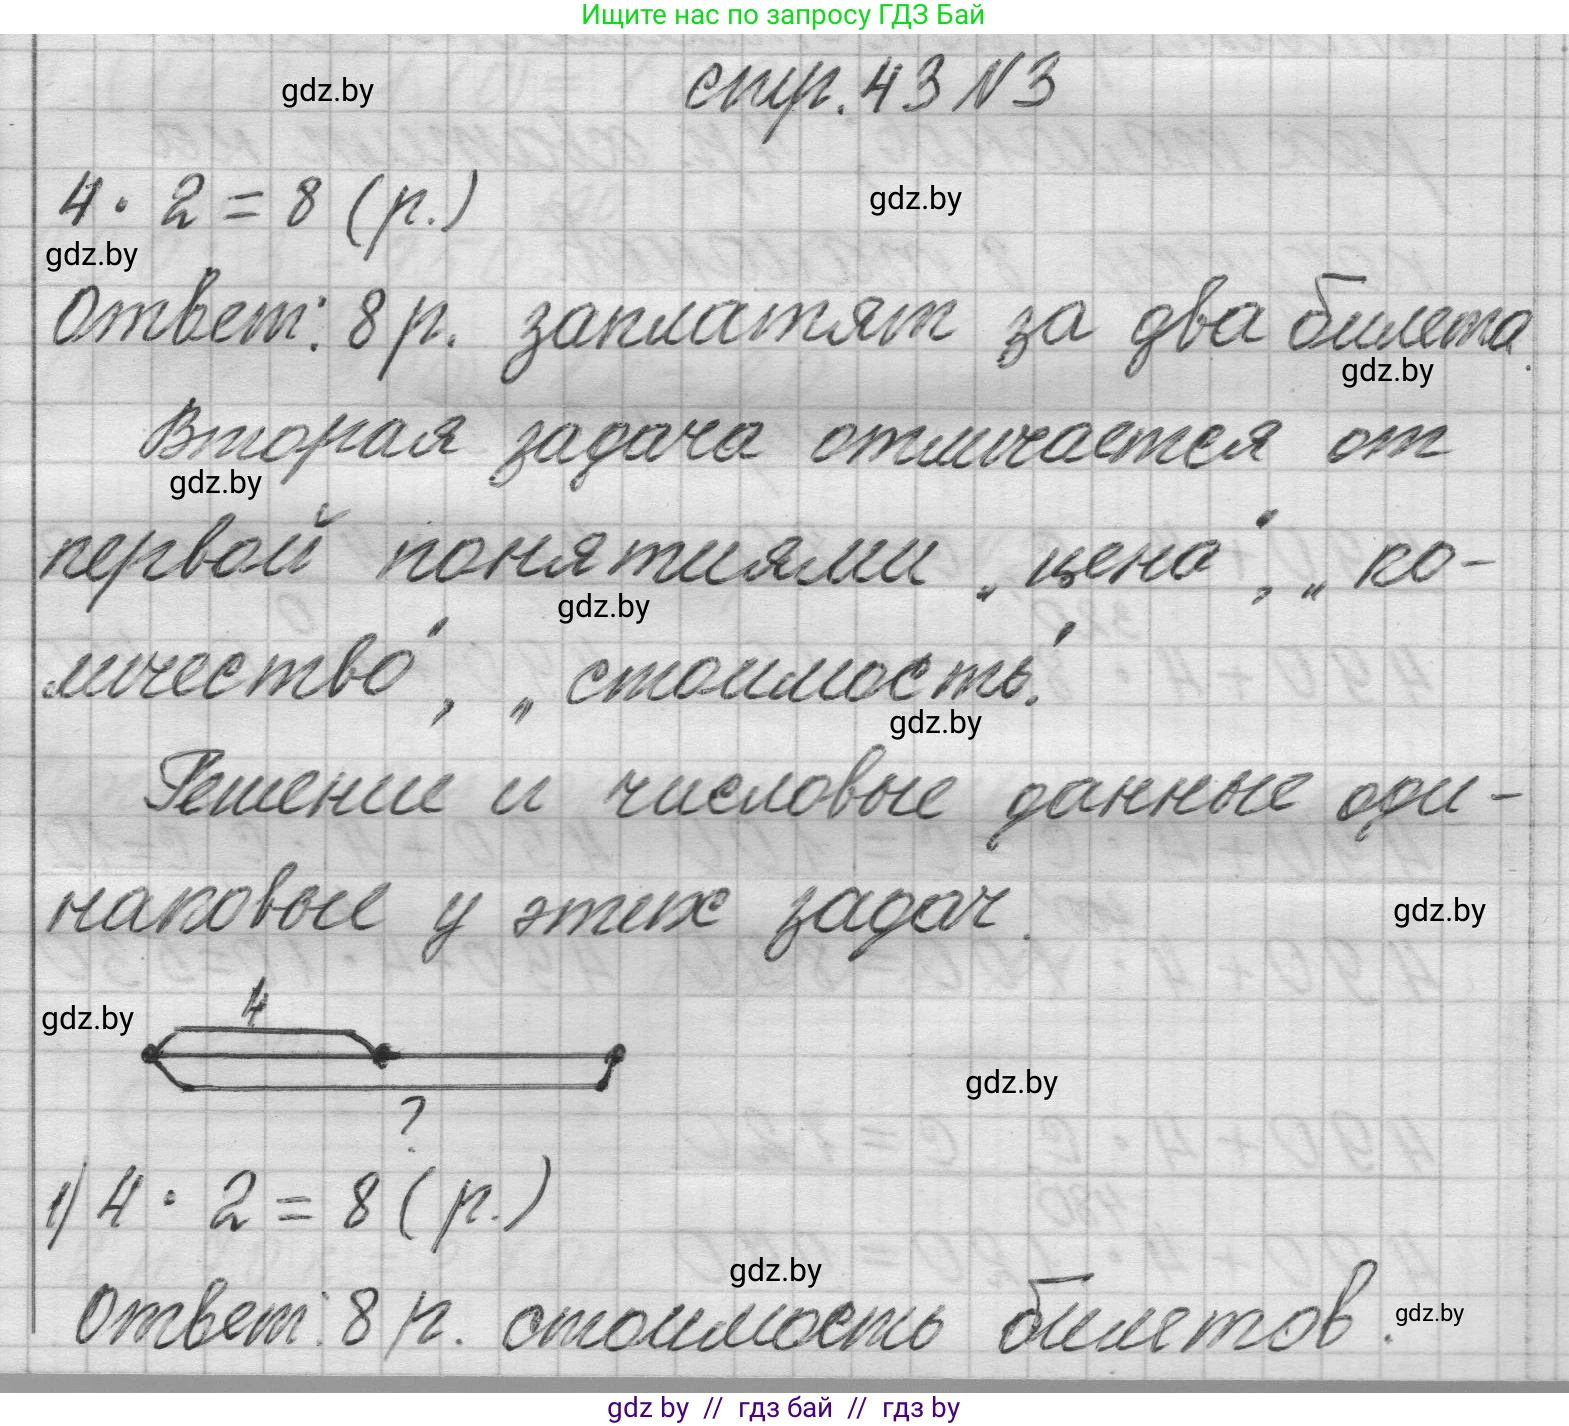 Ищите нас по запросу ГДЗ Бай
gdz.by
стр. 43 N 3
4 · 2 = 8 (р.)
gdz.by
gdz.by
Ответ: 8 р. заплатят за два билета.
gdz.by
Вторая задача отличается от
gdz.by
первой понятиями „цена“, „ко-
gdz.by
личество“, „стоимость“.
gdz.by
Решение и числовые данные оди-
наковые у этих задач.
gdz.by
4
gdz.by
gdz.by
?
1) 4 · 2 = 8 (р.)
gdz.by
Ответ: 8 р. стоимость билетов.
gdz.by
gdz.by // гдз бай // гдз by